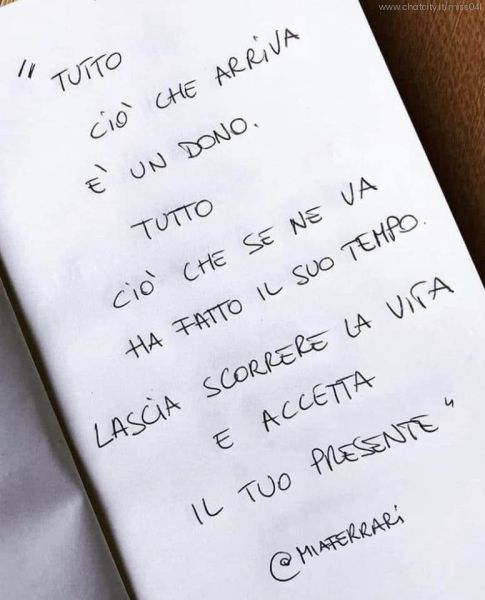 www.chatcity.it/miss04l
" TUTTO
CIÒ CHE ARRIVA
E' UN DONO.
TUTTO
CIÒ CHE SE NE VA
HA FATTO IL SUO TEMPO.
LASCIA SCORRERE LA VITA
E ACCETTA
IL TUO PRESENTE "
@MIAFERRARI